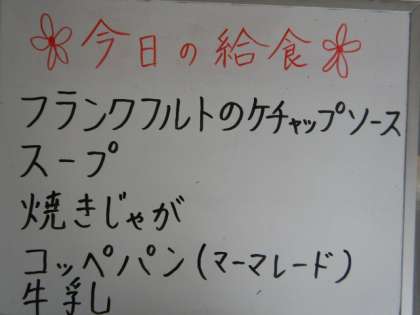 今日の給食
フランクフルトのケチャップソース
スープ
焼きじゃが
コッペパン(マーマレード)
牛乳